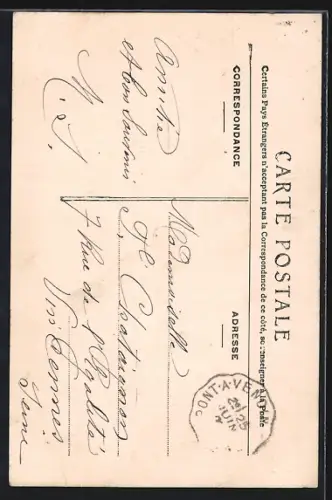 CARTE POSTALE
Certains Pays Étrangers n'acceptant pas la Correspondance de ce côté, se renseigner à la Poste
CORRESPONDANCE
ADRESSE
Amitié
et bon Souvenir
M. S.
Mademoiselle
7 Rue de l'Egalité
Vincennes
Seine
CONT-A-VEN
25
JUIN